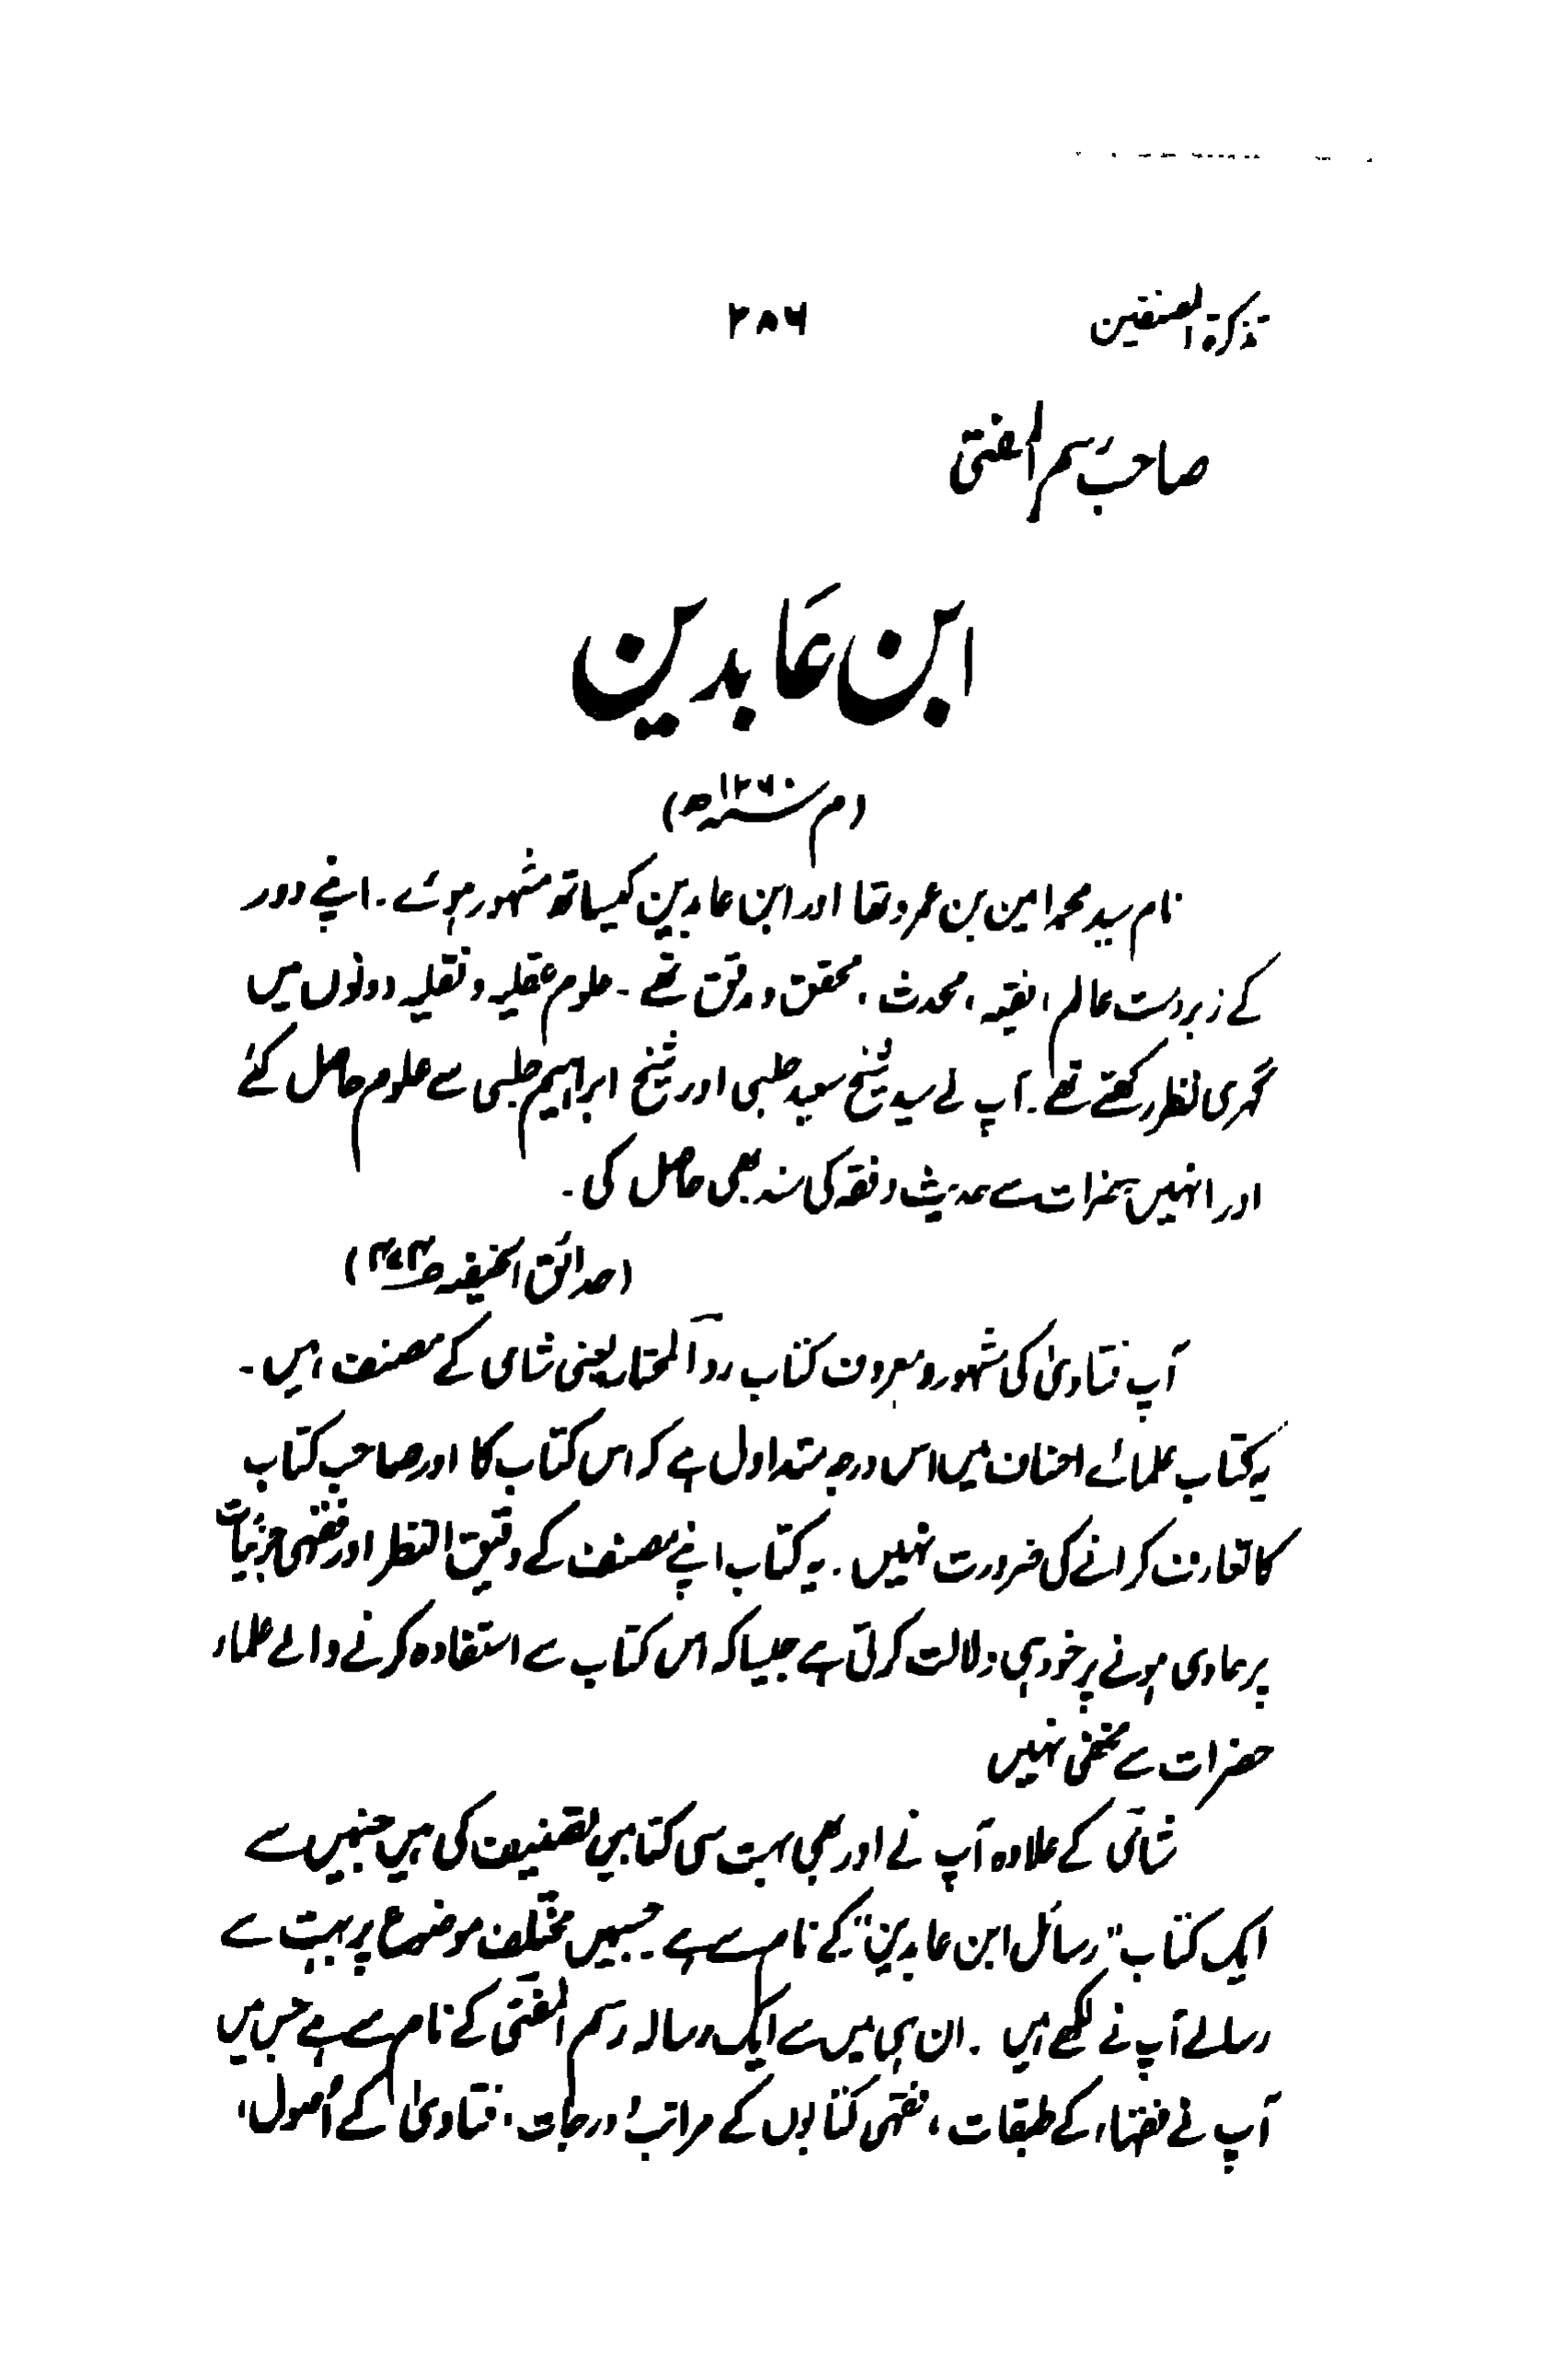 تذکرۃ المصنفین ۲۸۶
صاحب رسم المفتی
ابن عابدین
(م ۱۲۶۰ھ)
نام سید محمد امین بن عمرو تھا اور ابن عابدین کیساتھ مشہور ہوئے۔ اپنے دور
کے زبردست عالم، فقیہ، محدث، محقق و مدقق تھے۔ علوم عقلیہ و نقلیہ دونوں میں
گہری نظر رکھتے تھے۔ آپ نے سید شیخ سعید حلبی اور شیخ ابراہیم حلبی سے علوم حاصل کئے
اور انہیں حضرات سے حدیث و فقہ کی سند بھی حاصل کی۔
(حدائق الحنیفہ
آپ فتاویٰ کی مشہور و معروف کتاب رد المحتار یعنی شامی کے مصنف ہیں۔
یہ کتاب علمائے احناف میں اس درجہ متداول ہے کہ اس کتاب کا اور صاحب کتاب
کا تعارف کرانے کی ضرورت نہیں۔ یہ کتاب اپنے مصنف کے دقیق النظر اور فقہی جزئیات
پر حاوی ہونے پر خود ہی دلالت کرتی ہے جیسا کہ اس کتاب سے استفادہ کرنے والے علماء
حضرات سے مخفی نہیں
شامی کے علاوہ آپ نے اور بھی بہت سی کتابیں تصنیف کی ہیں جنہیں سے
ایک کتاب "رسائل ابن عابدین" کے نام سے ہے۔ جسمیں مختلف موضوع پر بہت سے
رسالے آپ نے لکھے ہیں۔ ان ہی میں سے ایک رسالہ رسم المفتی کے نام سے ہے جس میں
آپ نے فقہاء کے طبقات، فقہی کتابوں کے مراتب و درجات، فتاویٰ کے اُصول،